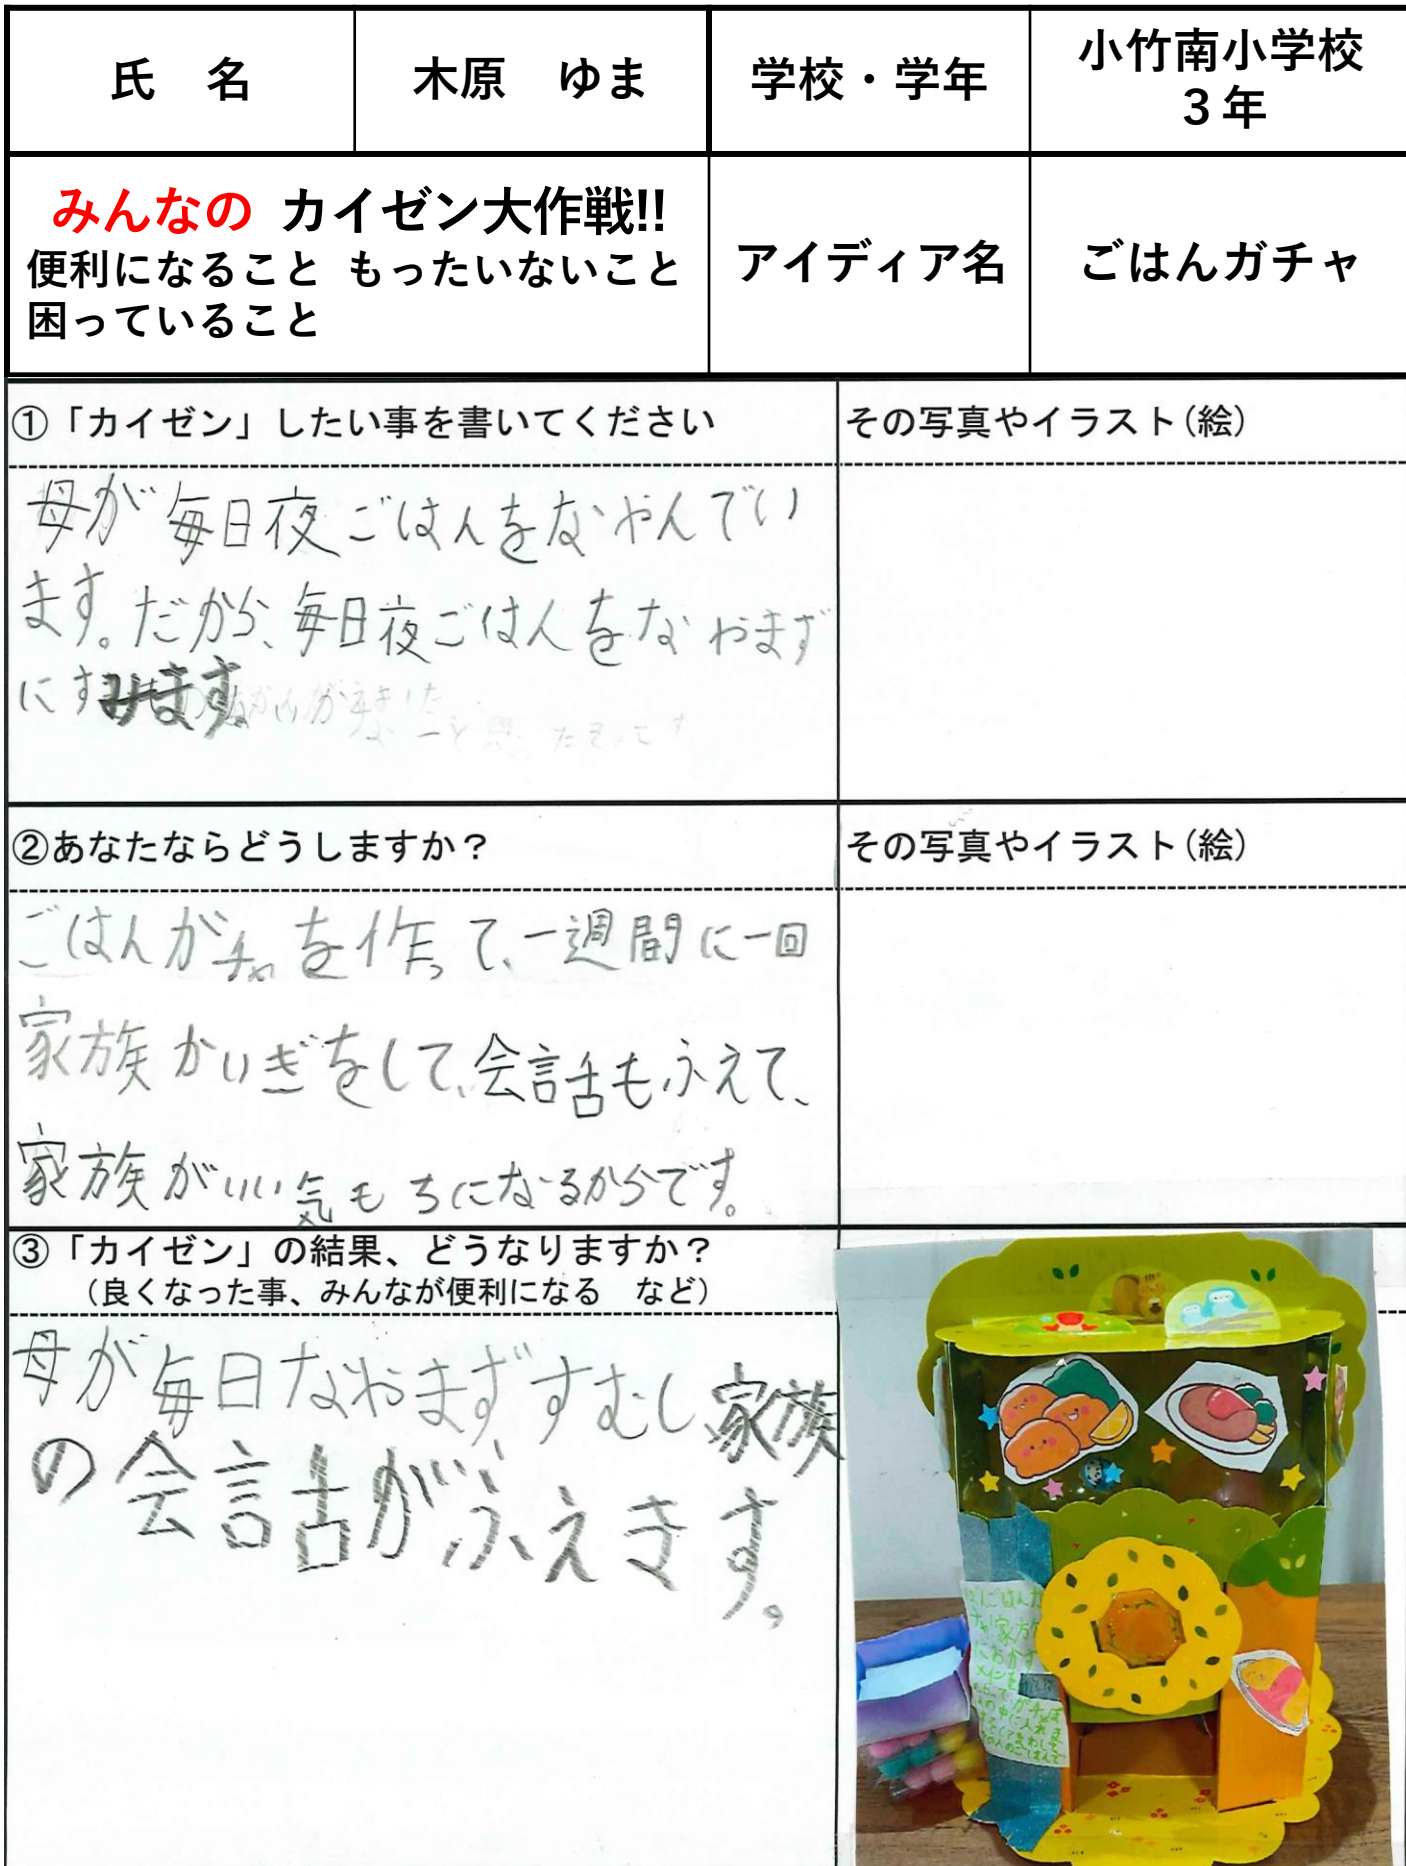 氏 名
木原 ゆま
学校・学年
小竹南小学校
３年
みんなの カイゼン大作戦!!
便利になること もったいないこと
困っていること
アイディア名
ごはんガチャ
①「カイゼン」したい事を書いてください
その写真やイラスト(絵)
母が毎日夜ごはんをなやんでい
ます。だから、毎日夜ごはんをなやまず
にすみます。
②あなたならどうしますか？
その写真やイラスト(絵)
ごはんがチャを作って、一週間に一回
家族かいぎをして、会話もふえて、
家族がいい気もちになるからです。
③「カイゼン」の結果、どうなりますか？
（良くなった事、みんなが便利になる など）
母が毎日なやまずすむし、家族
の会話がふえます。